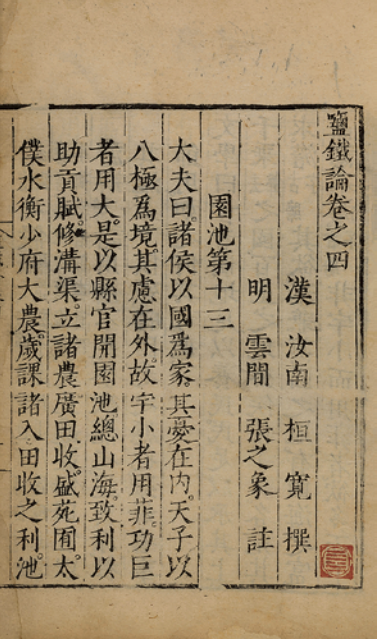 鹽鐵論卷之四
漢　汝南　桓寬　撰
明　雲間　張之象　註
園池第十三
大夫曰。諸侯以國爲家。其愛在內。天子以
八極爲境。其慮在外。故宇小者用菲。功巨
者用大。是以縣官開園池總山海。致利以
助貢賦。修溝渠。立諸農。廣田收。盛苑囿。太
僕水衡少府大農。歲課諸入。田收之利。池